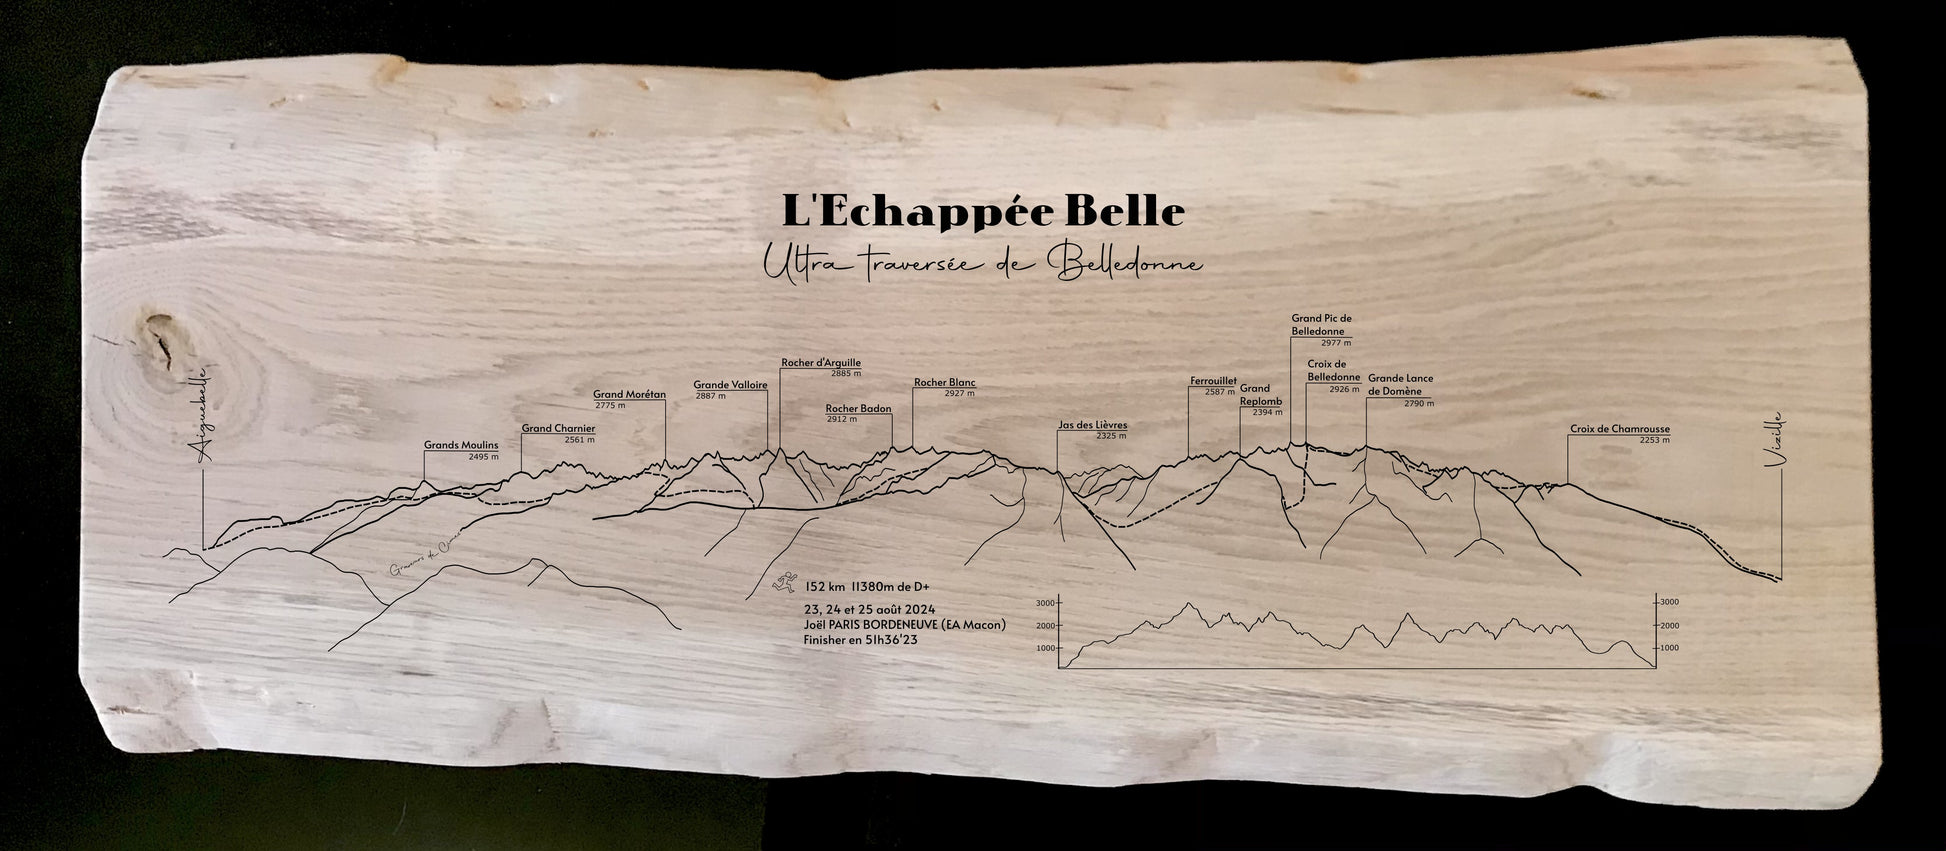 L'Echappée Belle
Ultra traversée de Belledonne
Aiguebelle
Grands Moulins
2495 m
Grand Charnier
2561 m
Grand Morétan
2775 m
Grande Valloire
2887 m
Rocher d'Arguille
2885 m
Rocher Badon
2912 m
Rocher Blanc
2927 m
Jas des Lièvres
2325 m
Ferrouillet
2587 m
Grand
Replomb
2394 m
Grand Pic de
Belledonne
2977 m
Croix de
Belledonne
2926 m
Grande Lance
de Domène
2790 m
Croix de Chamrousse
2253 m
Vizille
152 km 11380m de D+
23, 24 et 25 août 2024
Joël PARIS BORDENEUVE (EA Macon)
Finisher en 51h36'23
3000
2000
1000
3000
2000
1000